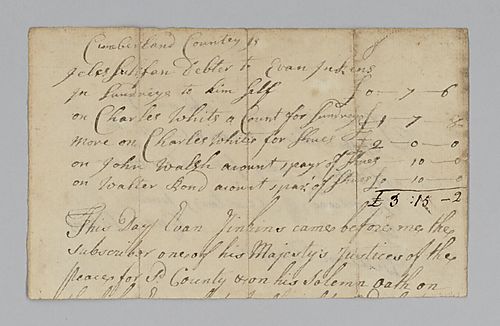 Cumberland County Ss
Sulifan Debter to Evan Jinkins
in Sundreys to him Self £ 0 — 7 — 6
on Charles Whits a Count for Sundreys £ 1 — 7 — 8
more on Charles Whits for Shues £ 2 — 0 — 0
on John Walsh acount 1 payr of Shues 10 — 0
on Walter Bond acount 1 pair of Shues 10 — 0
£ 3 : 15 — 2
This Day Evan Jinkins came before me the
Subscriber one of his Majesty's Justices of the
peace for Sd. County & on his Solemn Oath on